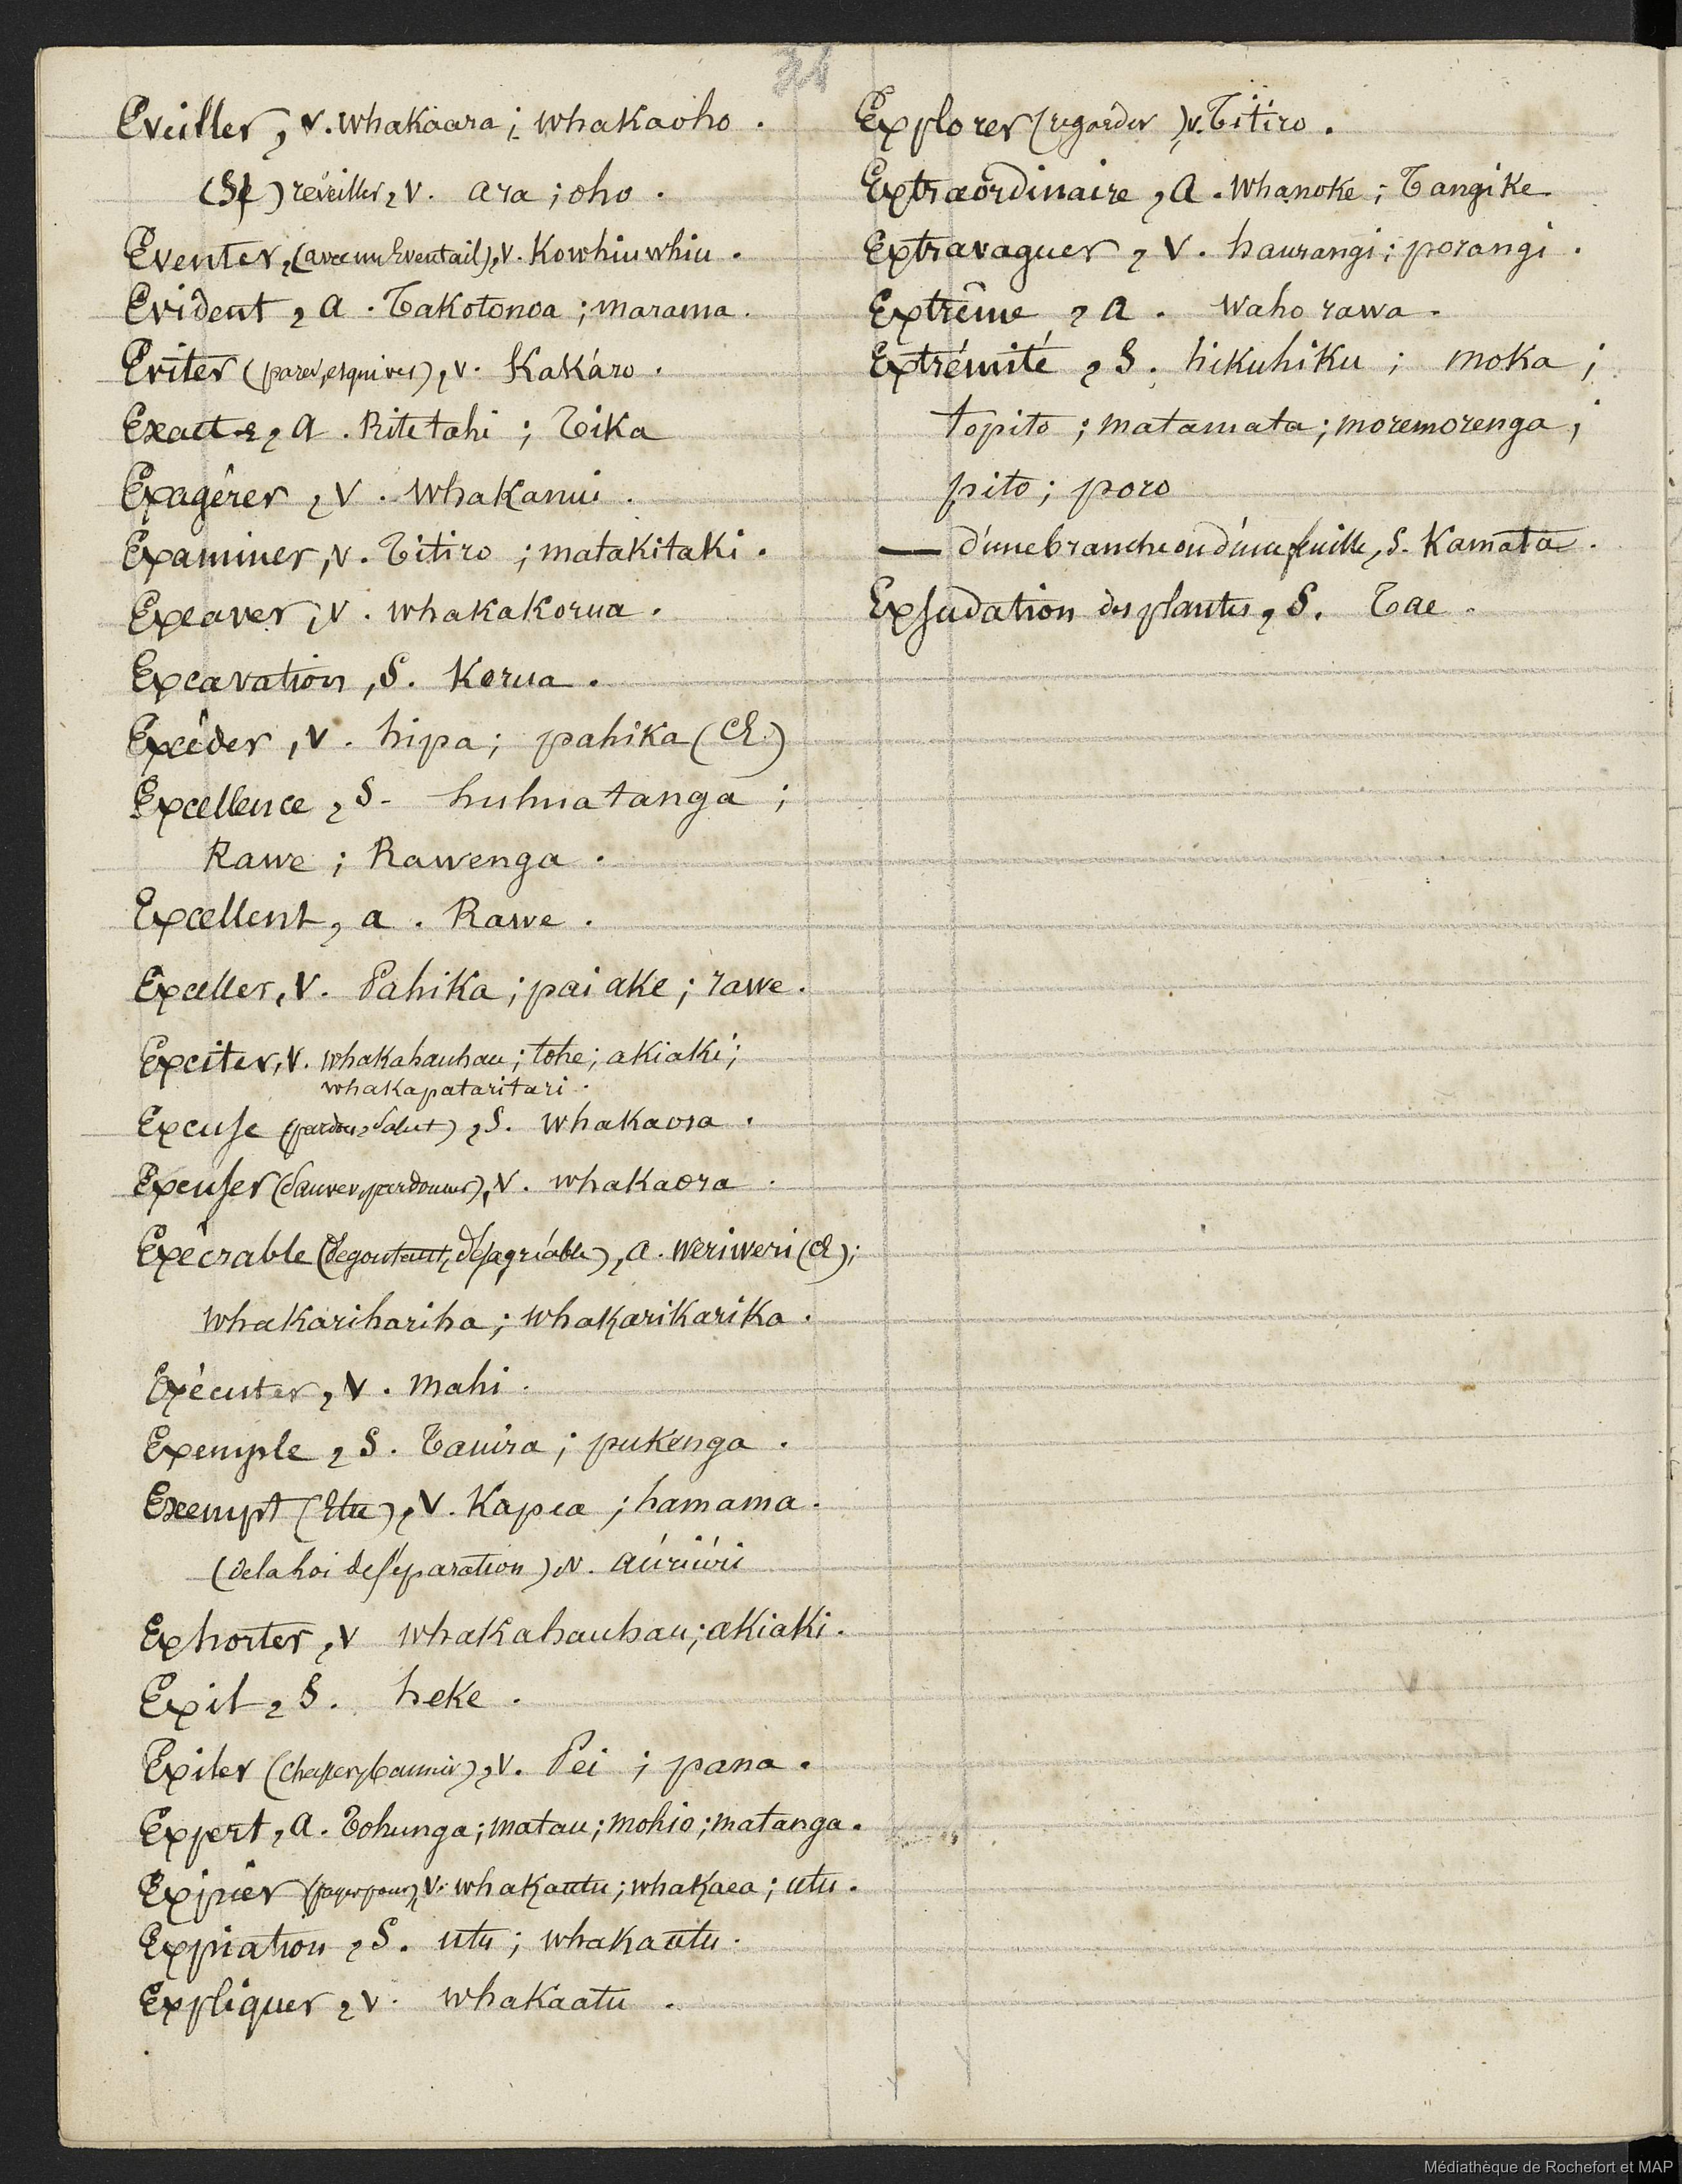 Eveiller, v. whakaara; whakaoho.
(Se) réveiller, v. ara; oho.
Eventer, (avec un Eventail), v. Kowhiuwhiu.
Evident, a. Takotonoa; marama.
Eviter (parer, esquiver), v. Kakáro.
Exact-e, a. Ritetahi; Tika
Exagérer, v. whakanui.
Examiner, v. Titiro; matakitaki.
Excaver, v. whakakorua.
Excavation, S. Korua.
Excéder, v. hipa; pahika (cE.)
Excellence, S- huhuatanga;
Rawe; Rawenga.
Excellent, a. Rawe.
Exceller, v. Pahika; pai ake; rawe.
Exciter, v. whakahauhau; tohe; akiaki;
whakapataritari.
Excuse (pardon, Salut), S. whakaora.
Excuser (Sauver, pardonner), v. whakaora.
Exécrable (degoutant, désagréable), a. weriweri (cE);
whakarihariha; whakarikarika.
Exécuter, v. mahi.
Exemple, S. Tauira; pukenga.
Exempt (Etre), v. Kapea; hamama.
(de la Loi de séparation), v. aúriúri
Exhorter, v whakahauhau; akiaki.
Exil, S. heke.
Exiler (chasser, bannir), v. Pei; pana.
Expert, a. Tohunga; matau; mohio; matanga.
Expier (payer pour), v. whakautu; whakaea; utu.
Expiation, S. utu; whakautu.
Expliquer, v. whakaatu.
Explorer (regarder), v. Titiro.
Extraordinaire, a. whanoke; Tangike.
Extravaguer, v. haurangi; porangi.
Extrême, a. waho rawa.
Extrémité, S. hikuhiku; moka;
topito; matamata; moremorenga;
pito; poro
— d'une branche ou d'une feuille, S. Kamata.
Exsudation des plantes, S. Tae.
Médiathèque de Rochefort et MAP